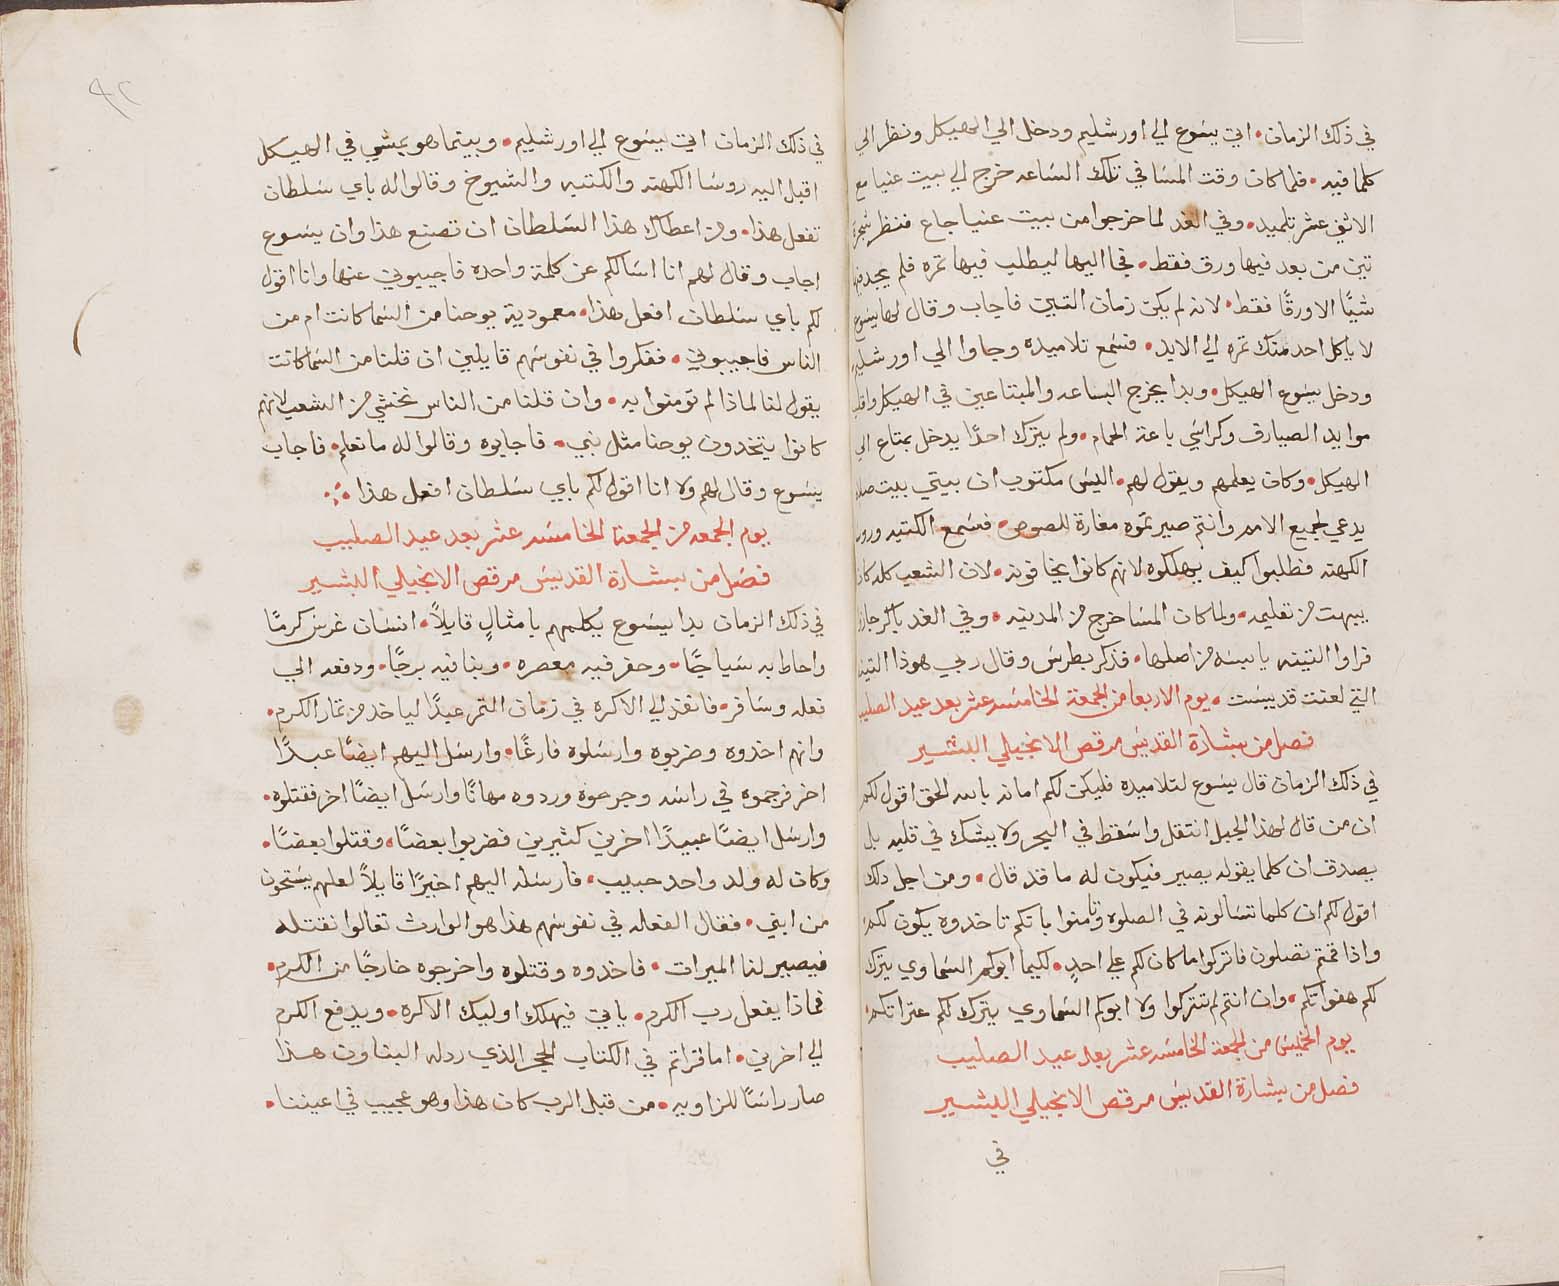 في ذلك الزمان• اتي يسوع الي اورشليم ودخل الي الهيكل ونظر الي
كلما فيه• فلما كان وقت المسا في تلك الساعه خرج الي بيت عنيا مع
الاثني عشر تلميد• وفي الغد لما خرجوا من بيت عنيا جاع فنظر شجرة
تين من بعد فيها ورق فقط• فجا اليها ليطلب فيها ثمره فلم يجد فيها
شيًا الا ورقًا فقط• لانه لم يكن زمان التين فاجاب وقال لها يسوع
لا ياكل احد منك ثمره الي الابد• فسمع تلاميده وجاوا الي اورشليم
ودخل يسوع الهيكل• وبدا يخرج الباعه والمبتاعين في الهيكل واقلب
موايد الصيارف وكراسي باعة الحمام• ولم يترك احدًا يدخل بمتاع الي
الهيكل• وكان يعلمهم ويقول لهم• اليس مكتوب ان بيتي بيت صلاه
يدعي لجميع الامم وانتم صيرتموه مغارة للصوص• فسمع الكتبه وروسا
الكهنه فطلبوا كيف يهلكوه لانهم كانوا يخافونه• لان الشعب كله كان
يبهت من تعليمه• ولما كان المسا خرج من المدينه• وفي الغد باكر جازوا
فراوا التينه يابسه من اصلها• فذكر بطرس وقال ربي هوذا التينه
التي لعنت قد يبست• يوم الاربعا من الجمعة الخامسه عشر بعد عيد الصليب
فصل من بشارة القديس مرقص الانجيلي البشير
في ذلك الزمان قال يسوع لتلاميده فليكن لكم امانه بالله الحق اقول لكم
ان من قال لهذا الجبل انتقل واسقط في البحر ولا يشك في قلبه بل
يصدق ان كلما يقوله يصير فيكون له ما قد قال• ومن اجل دلك
اقول لكم ان كلما تسالونه في الصلوه وتامنوا بانكم تاخدوه يكون لكم
واذا قمتم تصلون فاتركوا ما كان لكم علي احدٍ• لكيما ابوكم السماوي يترك
لكم هفواتكم• وان انتم لم تتركوا ولا ابوكم السماوي يترك لكم عتراتكم•
يوم الخميس من الجمعة الخامسه عشر بعد عيد الصليب
فصل من بشارة القديس مرقص الانجيلي البشير
في
٩٢
في ذلك الزمان اتي يسوع الي اورشليم• وبينما هو يمشي في الهيكل
اقبل اليه روسا الكهنه والكتبه والشيوخ وقالوا له باي سلطان
تفعل هذا• ومن اعطاك هذا السلطان ان تصنع هذا وان يسوع
اجاب وقال لهم انا اسالكم عن كلمة واحده فاجيبوني عنها وانا اقول
لكم باي سلطان افعل هذا• معمودية يوحنا من السما كانت ام من
الناس فاجيبوني• ففكروا في نفوسهم قايلين ان قلنا من السما كانت
يقول لنا لماذا لم تومنوا به• وان قلنا من الناس نخشي من الشعب لانهم
كانوا يتخدون يوحنا مثل نبي• فاجابوه وقالوا له ما نعلم• فاجاب
يسوع وقال لهم ولا انا اقول لكم باي سلطان افعل هذا
يوم الجمعه من الجمعة الخامسه عشر بعد عيد الصليب
فصل من بشارة القديس مرقص الانجيلي البشير
في ذلك الزمان بدا يسوع يكلمهم بامثالٍ قايلاً• انسان غرس كرمًا
واحاط به سياجًا• وحفر فيه معصره• وبنا فيه برجًا• ودفعه الي
فعله وسافر• فانفذ الي الاكره في زمان الثمر عبدًا لياخد من ثمار الكرم•
وانهم اخدوه وضربوه وارسلوه فارغًا• وارسل اليهم ايضًا عبدًا
اخر فرجموه في راسه وجرحوه وردوه مهانًا وارسل ايضًا اخر فقتلوه•
وارسل ايضًا عبيدًا اخرين كثيرين فضربوا بعضًا• وقتلوا بعضًا•
وكان له ولد واحد حبيب• فارسله اليهم اخيرًا قايلاً لعلهم يستحون
من ابني• فقال الفعله في نفوسهم هذا هو الوارث تعالوا نقتله
فيصير لنا الميرات• فاخدوه وقتلوه واخرجوه خارجًا من الكرم•
فماذا يفعل رب الكرم• ياتي فيهلك اوليك الاكره• ويدفع الكرم
الي اخرين• اما قراتم في الكتاب الحجر الذي ردله البناون هذا
صار راسًا للزاويه• من قبل الرب كان هذا وهو عجيب في اعيننا•